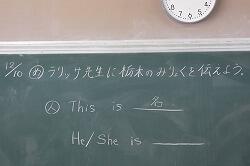 12/10 め ラリッサ先生に栃木のみりょくを伝えよう。
人 This is 名
He/She is